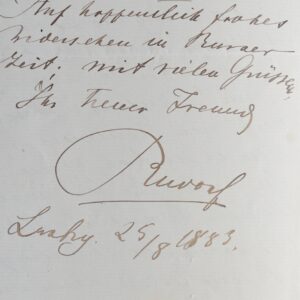 Auf hoffentlich frohes
Wiedersehen in kurzer
Zeit; mit vielen Grüssen
Ihr treuer Freund
Rudorf
25/8 1883.